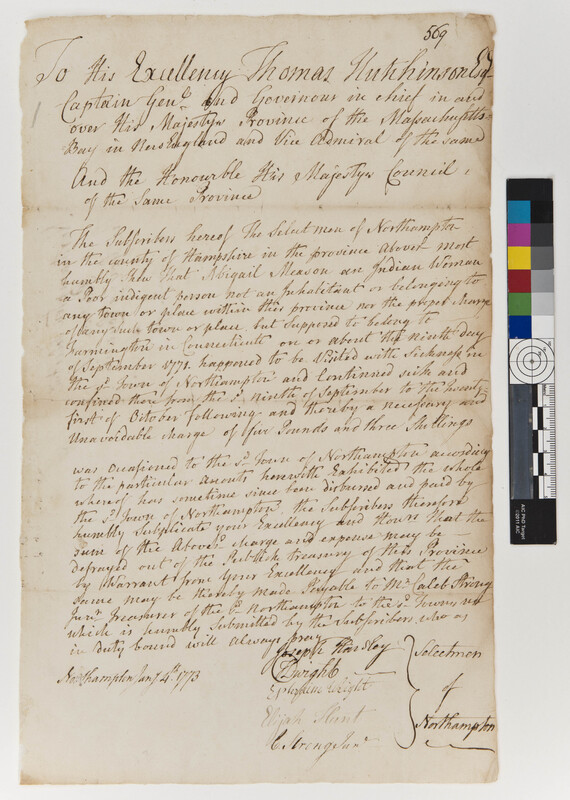 569
To His Excellency Thomas Hutchinson Esqr
Captain Genl. and Governour in chief in and
over His Majestys Province of the Massachusetts
Bay in New England and Vice Admiral of the same
And the Honourable His Majestys Council,
of the Same Province
The Subscribers hereof The Select men of Northampton
in the county of Hampshire in the province abovesd. most
humbly Shew That Abigail Meason an Indian Woman
a Poor indigent person not an Inhabitant or belonging to
any town or place within this province nor the proper charge
of any such town or place, but Supposed to belong to
Farmington in Connecticutt on or about the ninth day
of September 1771. happened to be Visited with Sickness in
the sd. Town of Northampton and Continued sick and
confined there from the sd. ninth of September to the twenty-
first of October following and thereby a necessary and
Unavoidable charge of five Pounds and three Shillings
was occasioned to the sd. Town of Northampton according
to the particular accounts herewith Exhibited the whole
whereof has sometime since been disbursed and paid by
the sd. Town of Northampton, the Subscribers therefore
humbly Supplicate your Excellency and Honrs. that the
Sum of the Above charge and expense may be
defrayed out of the Publick treasury of this Province
by Warrant from your Excellency and that the
same may be thereby made Payable to Mr. Caleb Strong
Junr. Treasurer of the sd. Northampton to the sd. Towns use
which is humbly Submitted by the Subscribers, who as
in duty bound will always pray
Northampton Jany 4th. 1773
Joseph Hawley
Dwight
Ephraim Wright
Elijah Hunt
C. Strong Junr.
Selectmen
of
Northampton
AIC PhD Target
©2011 AIC